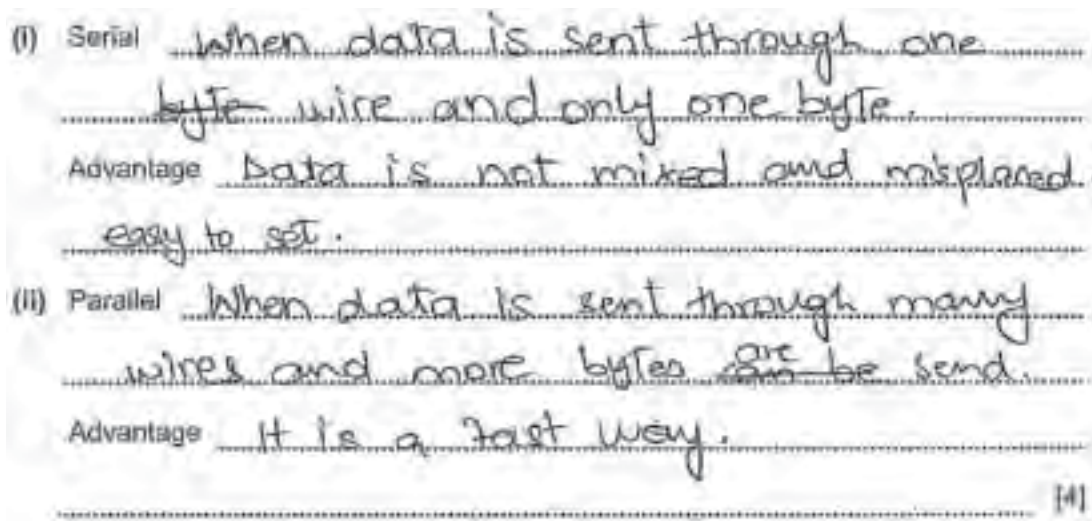 (i) Serial When data is sent through one
byte wire and only one byte.
Advantage Data is not mixed and misplaced
easy to set.
(ii) Parallel When data is sent through many
wires and more bytes are can be send.
Advantage It is a fast way.
[4]